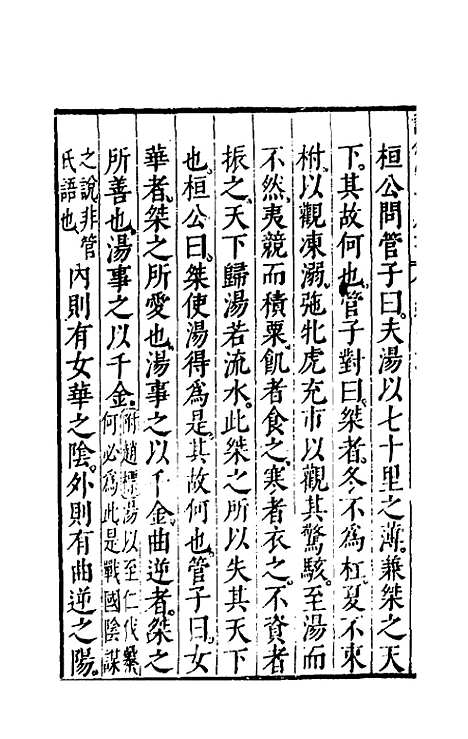 桓公問管子曰。夫湯以七十里之薄。兼桀之天
下。其故何也。管子對曰。桀者。冬不爲杠。夏不束
柎。以觀凍溺。弛牝虎充市以觀其驚駭。至湯而
不然。夷競而積粟。飢者食之。寒者衣之。不資者
振之。天下歸湯若流水。此桀之所以失其天下
也。桓公曰。桀使湯得爲是。其故何也。管子曰。女
華者。桀之所愛也。湯事之以千金。曲逆者。桀之
所善也。湯事之以千金。附趙標湯以至仁伐桀何必爲此是戰國陰謀
之說非管氏語也內則有女華之陰。外則有曲逆之陽。